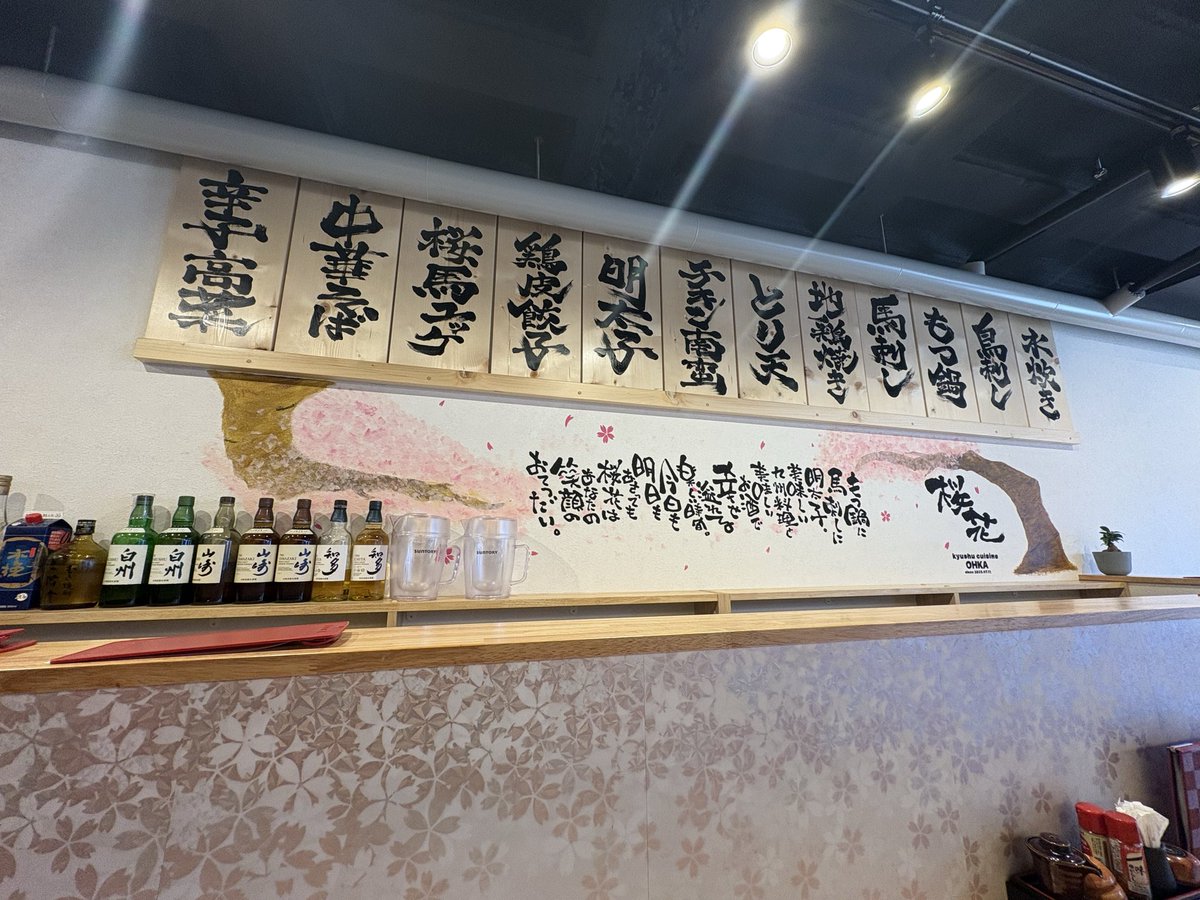 水炊き
鳥刺し
もつ鍋
馬刺し
地鶏焼き
とり天
チキン南蛮
明太子
鶏皮餃子
桜馬ユッケ
中華そば
辛子高菜
もつ鍋に
馬刺しに
明太子。
美味しい
九州料理と
美味しい
お酒で
楽しい時間。
今日も
明日も
あさっても
桜花は
あなたの
笑顔の
おてつだい。
桜花
kyushu cuisine
OHKA
白州
白州
山崎
山崎
山崎
知多
知多
SUNTORY
SUNTORY